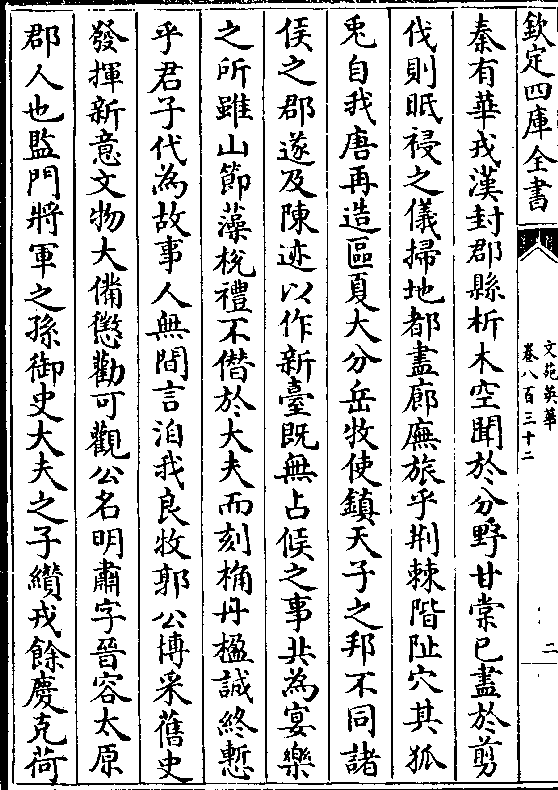 欽定四庫全書
文苑英華
卷八百三十二
二
秦有華戎漢封郡縣析木空聞於分野甘棠已盡於剪
伐則眂祲之儀掃地都盡廊廡旅乎荆棘階阯穴其狐
兎自我唐再造區夏大分岳牧使鎮天子之邦不同諸
侯之郡遂及陳迹以作新臺既無占候之事共為宴樂
之所雖山節藻梲禮不僭於大夫而刻桷丹楹誠終慙
乎君子代為故事人無間言洎我良牧郭公博采舊史
發揮新意文物大備懲勸可觀公名明肅字晉容太原
郡人也監門將軍之孫御史大夫之子纘戎餘慶克荷